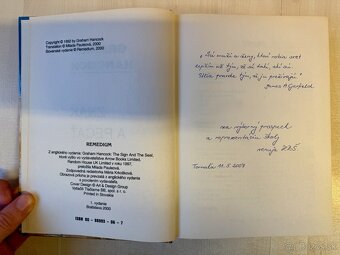 Copyright © 1992 by Graham Hancock
Translation © Milada Pauleová, 2000
Slovenské vydanie © Remedium, 2000
REMEDIUM
Z anglického vydania: Graham Hancock: The Sign And The Seal,
ktoré vyšlo vo vydavateľstve Arrow Books Limited,
Random House UK Limited v roku 1997,
preložila Milada Pauleová.
Zodpovedná redaktorka Mária
Obrazová príloha je prevzatá z anglického vydania
s povolením vydavateľa.
Cover Design © Art & Design Group
Vytlačili Tlačiarne BB, spol. s r. o.
Printed in Slovakia
1. vydanie
Bratislava 2000
ISBN 80 - 88993 - 06 - 7
sú muži a ženy, ktorí robia svet
lepším už tým, že sú takí, akí sú.
James A Garfield
za výborný prospech
a reprezentáciu školy
venuje ZRŠ
11. 5. 2007